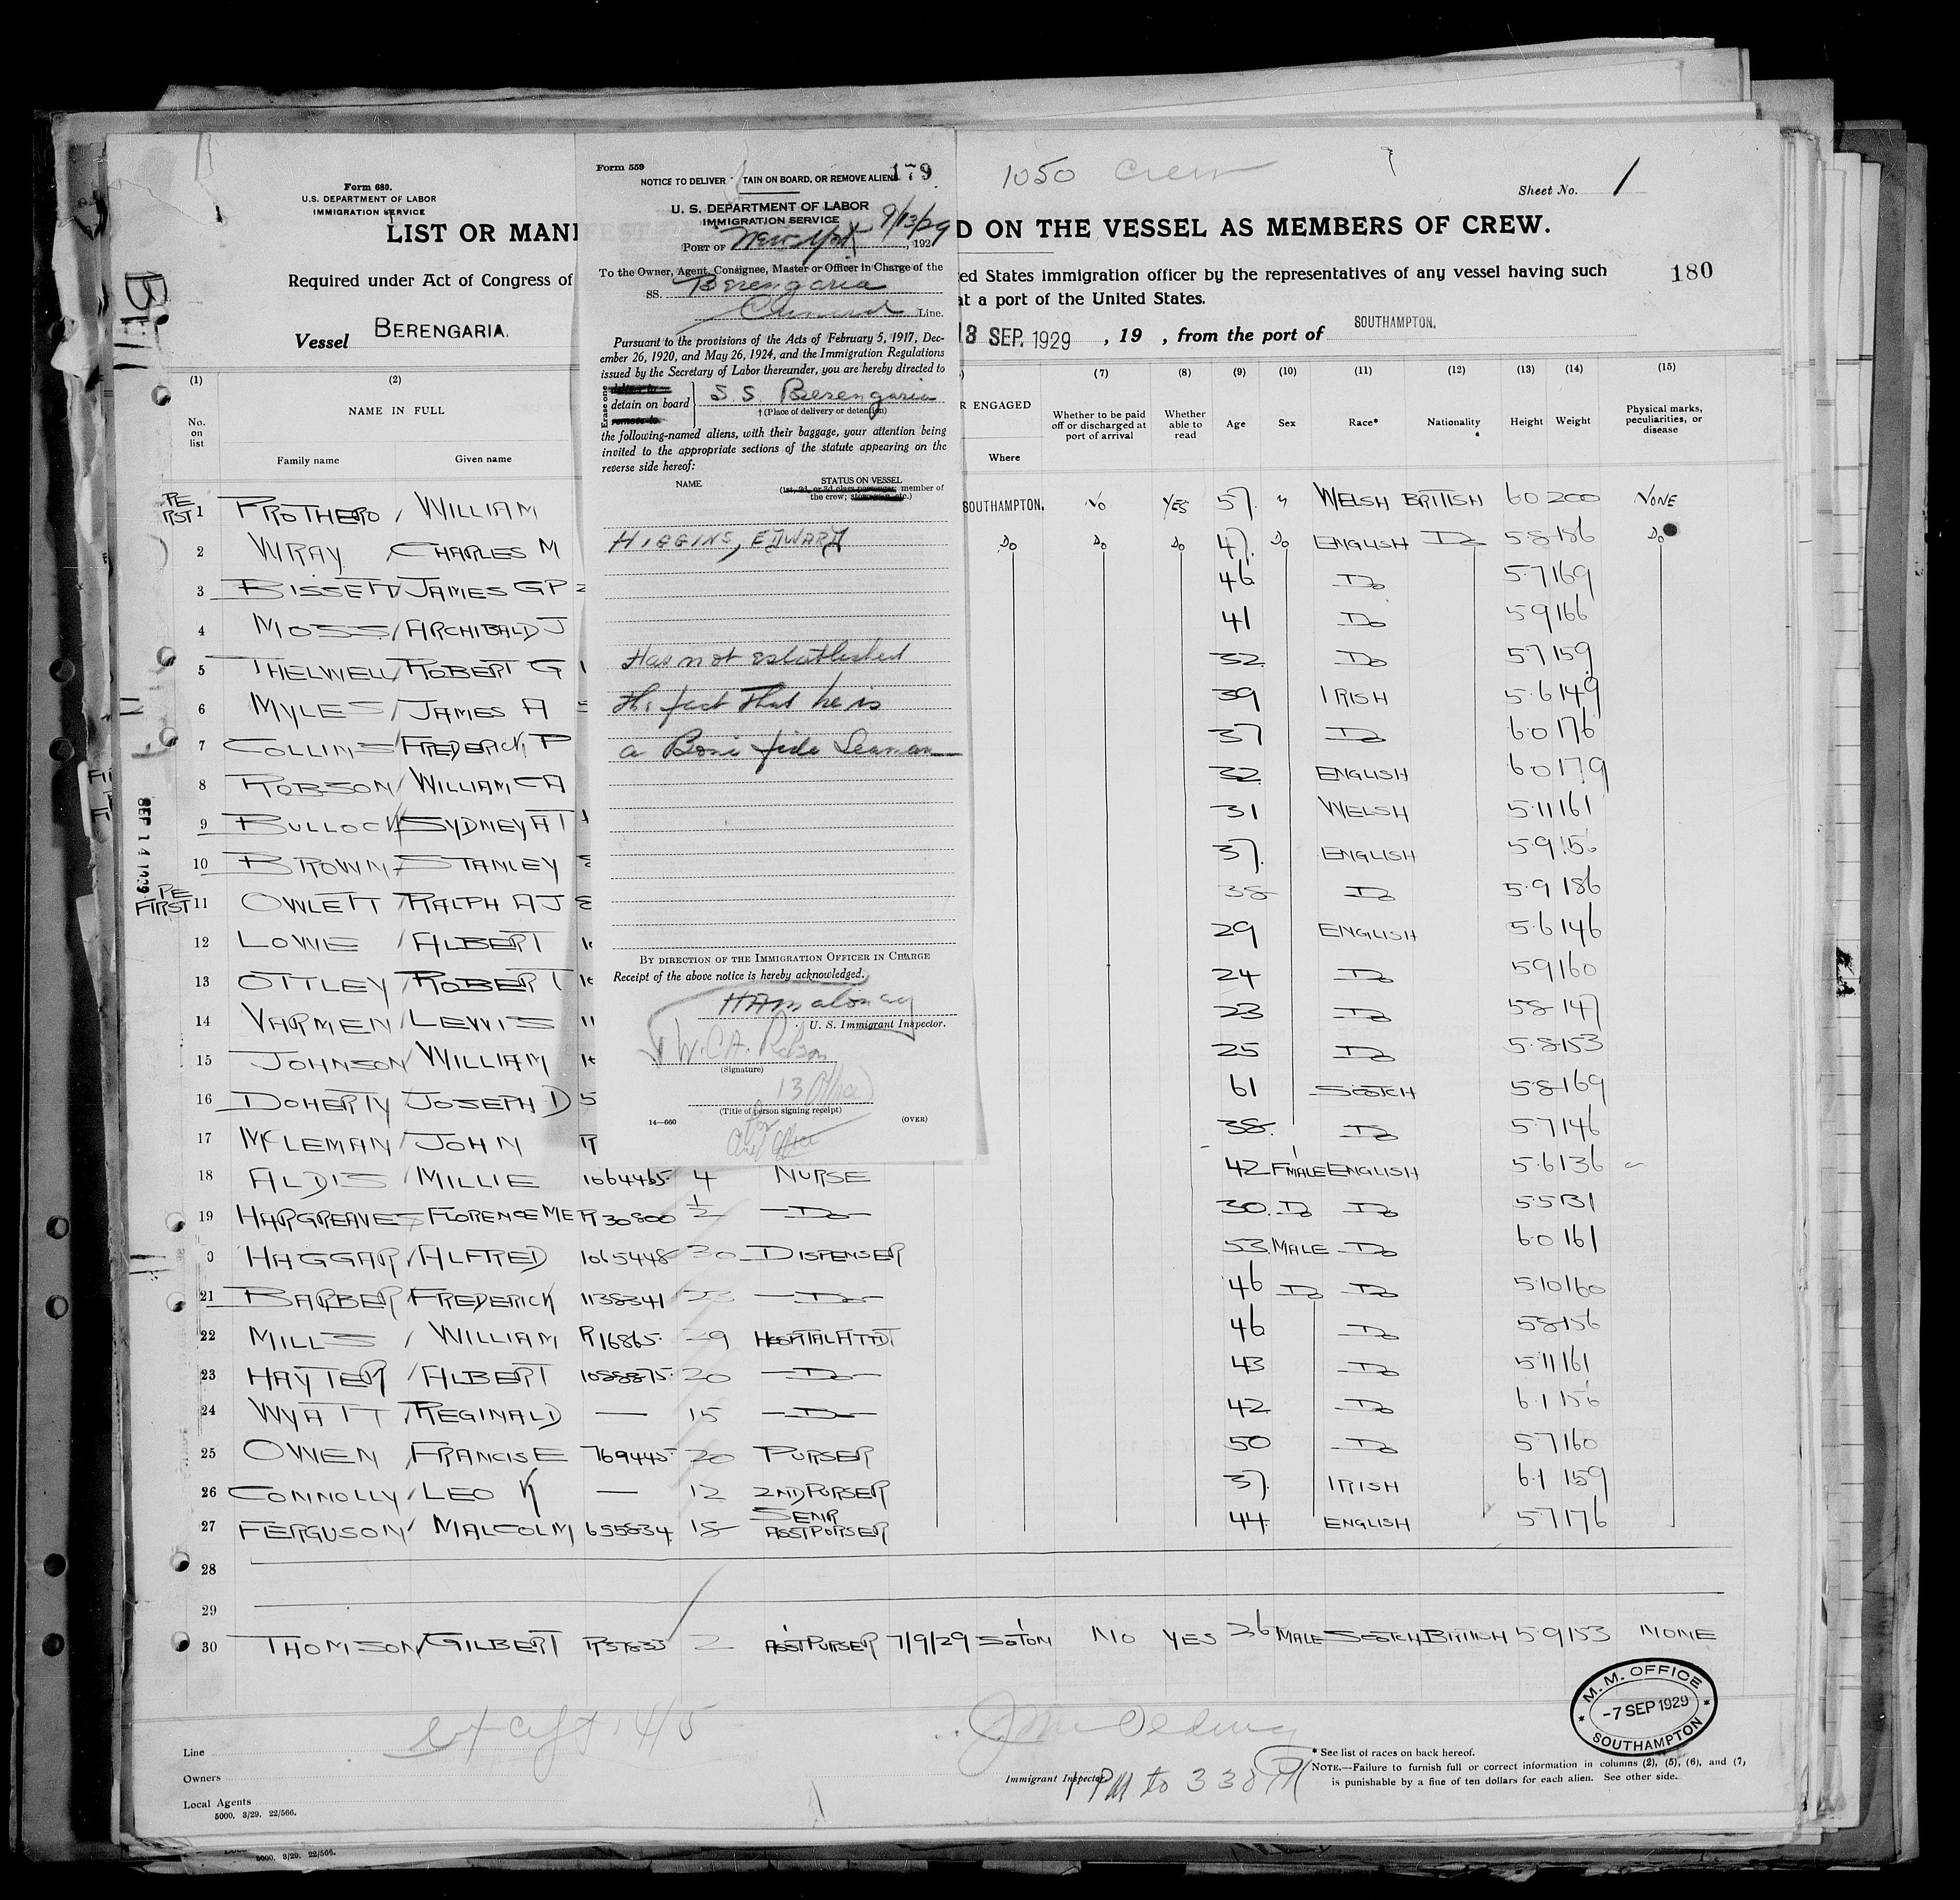 Form 680.
U.S. DEPARTMENT OF LABOR
IMMIGRATION SERVICE
1050 Crew
Sheet No. 1
LIST OR MANI
D ON THE VESSEL AS MEMBERS OF CREW.
Required under Act of Congress of
ted States immigration officer by the representatives of any vessel having such
180
at a port of the United States.
Vessel BERENGARIA.
13 SEP. 1929, 19 , from the port of SOUTHAMPTON.
Form 559
NOTICE TO DELIVER TAIN ON BOARD, OR REMOVE ALIENS
179
U. S. DEPARTMENT OF LABOR
IMMIGRATION SERVICE
PORT OF New York 9/13/29, 192
To the Owner, Agent, Consignee, Master or Officer in Charge of the
SS. Berengaria
Cunard Line.
Pursuant to the provisions of the Acts of February 5, 1917, Dec-
ember 26, 1920, and May 26, 1924, and the Immigration Regulations
issued by the Secretary of Labor thereunder, you are hereby directed to
Erase one
deliver to
detain on board S. S. Berengaria
remove to
† (Place of delivery or detention)
the following-named aliens, with their baggage, your attention being
invited to the appropriate sections of the statute appearing on the
reverse side hereof:
NAME
STATUS ON VESSEL
(1st, 2d, or 3d class passenger; member of
the crew; stowaway, etc.)
HIGGINS, EDWARD
Has not established
the fact that he is
a Bona fide Seaman
BY DIRECTION OF THE IMMIGRATION OFFICER IN CHARGE
Receipt of the above notice is hereby acknowledged.
HAMaloney
U. S. Immigrant Inspector.
W. C. A. Robson
(Signature)
(Title of person signing receipt)
for
Chief Officer
14—660
(OVER)
(1) (2) (7) (8) (9) (10) (11) (12) (13) (14) (15)
No. on list
NAME IN FULL
Family name Given name
R ENGAGED
Where
Whether to be paid off or discharged at port of arrival
Whether able to read
Age
Sex
Race*
Nationality
Height
Weight
Physical marks, peculiarities, or disease
1 PROTHERO, WILLIAM SOUTHAMPTON. NO YES 57. WELSH BRITISH 6 0 200 NONE
2 WRAY, CHARLES M DO DO DO 47. DO ENGLISH DO 5 8 186 DO
3 BISSETT/JAMES GP 46 DO 5.7 169
4 MOSS/ARCHIBALD J 41 DO 5 9 166
5 THELWELL/ROBERT G 32. DO 5 7 159
6 MYLES/JAMES A 39 IRISH 5.6 149
7 COLLINS/FREDERICK P 37 DO 6.0 176
8 ROBSON/WILLIAM C A 32 ENGLISH 6 0 179
9 BULLOCK/SYDNEY A T 31 WELSH 5.11 161
10 BROWN/STANLEY 37. ENGLISH 5.9 156
PE FIRST 11 OWLETT/RALPH A J 38 DO 5.9 186
12 LOWE/ALBERT 29 ENGLISH 5.6 146
13 OTTLEY/ROBERT 24 DO 5 9 160
14 VARMEN/LEWIS 23 DO 5 8 147
15 JOHNSON/WILLIAM 25 DO 5.8 153
16 DOHERTY/JOSEPH D 61 SCOTCH 5 8 169
17 McLEMAN/JOHN 38. DO 5.7 146
18 ALDIS/MILLIE 1064465. 4 NURSE 42 FMALE ENGLISH 5.6 136
19 HARGREAVES FLORENCE ME R30800 1/2 DO 30. DO DO 5 5 131
0 HAGGAR/ALFRED 1065448 30 DISPENSER 53. MALE DO 6.0 161
21 BARBER/FREDERICK 1138341 23 DO 46 DO DO 5 10 160
22 MILLS/WILLIAM R16865. 29 HOSPITAL ATTDT 46 DO 5 8 156
23 HAYTER/ALBERT 1088875. 20 DO 43 DO 5 11 161
24 WYATT/REGINALD — 15 DO 42 DO 6.1 156
25 OWEN/FRANCIS E 769445 20 PURSER 50 DO 5.7 160
26 CONNOLLY/LEO K — 12 2ND PURSER 37. IRISH 6.1 159
27 FERGUSON/MALCOLM 655834 18 SENR ASST PURSER 44 ENGLISH 5.7 176
28
29
30 THOMSON/GILBERT R57835 2 ASST PURSER 7/9/29 SOTON NO YES 26 MALE SCOTCH BRITISH 5.9 153 NONE
SEP 14 1929
M. M. OFFICE
-7 SEP 1929
SOUTHAMPTON
Line
Owners
Local Agents
5000. 3/29. 22/566.
Immigrant Inspector
1 PM to 3 30 PM
* See list of races on back hereof.
NOTE.—Failure to furnish full or correct information in columns (2), (5), (6), and (7),
is punishable by a fine of ten dollars for each alien. See other side.
5000, 3/29. 22/566.